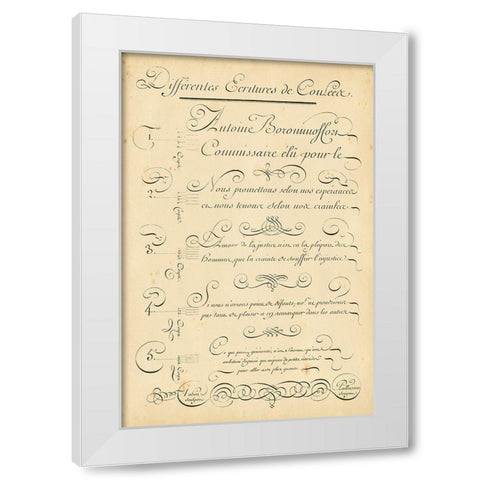 Différentes Ecritures de Coulées.
1.
Antoine
Commissaire élû pour le
2.
Nous promettons selon nos esperances
et nous tenons selon nos craintes
3.
L'Amour de la justice n'est en la plupart des
hommes, que la crainte de souffrir l'injustice
4.
Si nous n'avions point de défauts, nous ne prendrions
pas tant de plaisir à en remarquer dans les autres
5.
Ce que paroit générosité, n'est souvent qu'une
ambition déguisée qui méprise de petits intérêts
pour aller à de plus grands
Aubin
Sculpsit
Scripsit